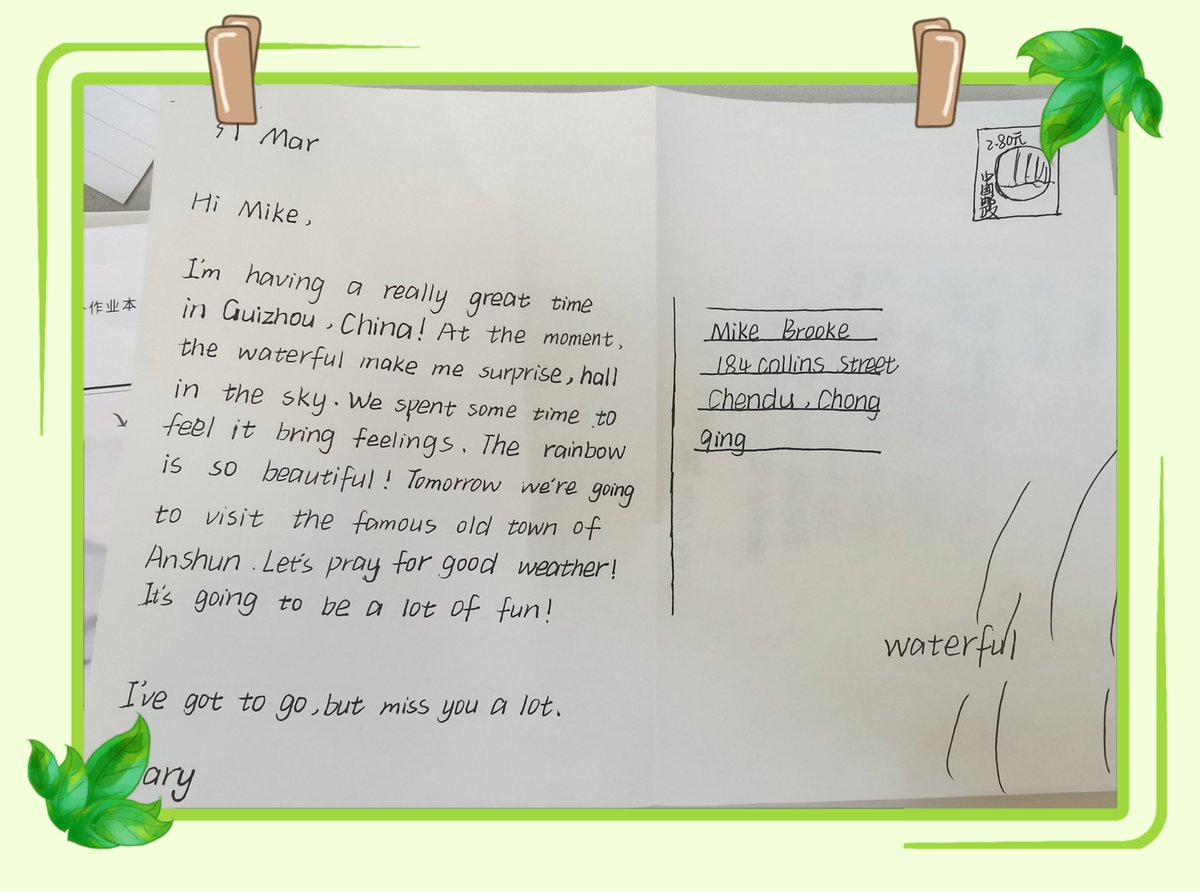 Mar
Hi Mike,
I'm having a really great time
in Guizhou, China! At the moment,
the waterful make me surprise, hall
in the sky. We spent some time to
feel it bring feelings. The rainbow
is so beautiful! Tomorrow we're going
to visit the famous old town of
Anshun. Let's pray for good weather!
It's going to be a lot of fun!
I've got to go, but miss you a lot.
ary
2.80元
中国邮政
Mike Brooke
184 collins street
Chendu, Chong
qing
waterful
作业本